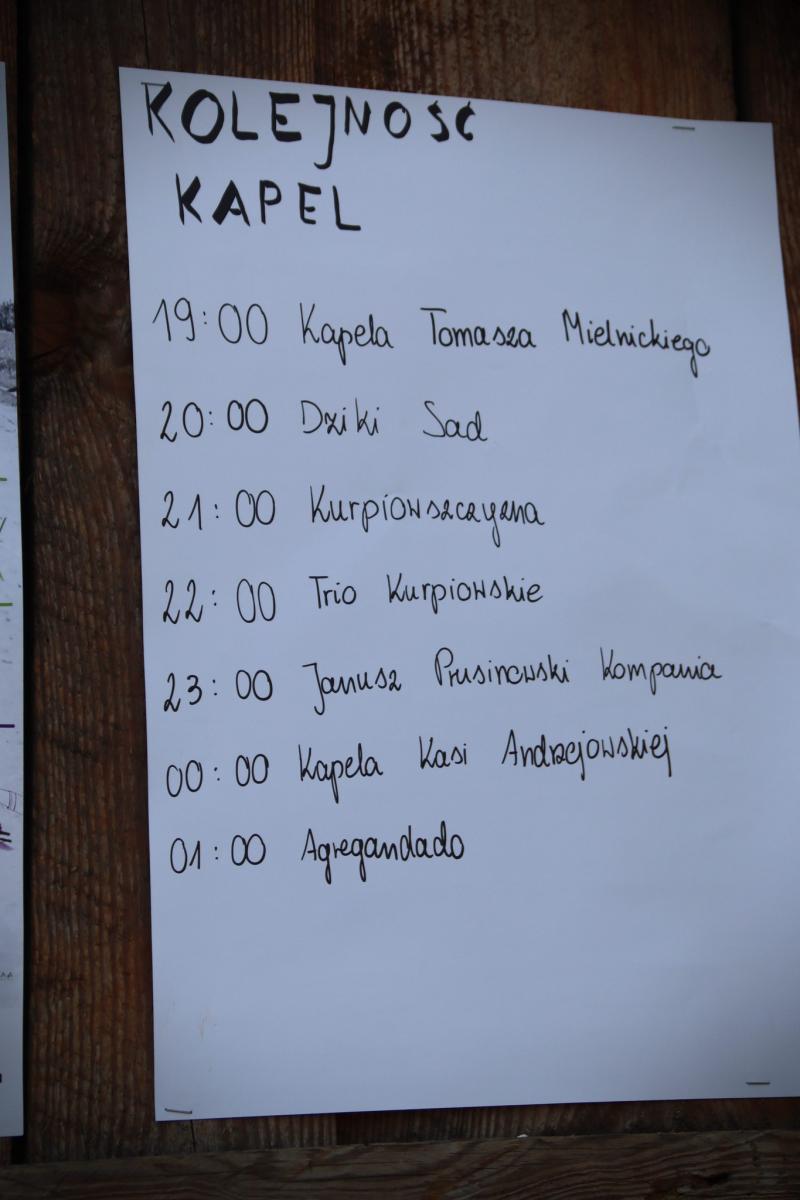 KOLEJNOŚĆ
KAPEL
19:00 Kapela Tomasza Mielnickiego
20:00 Dziki Sad
21:00 Kurpiowszczyzna
22:00 Trio Kurpiowskie
23:00 Janusz Prusinowski Kompania
00:00 Kapela Kasi Andrzejowskiej
01:00 Agregandado